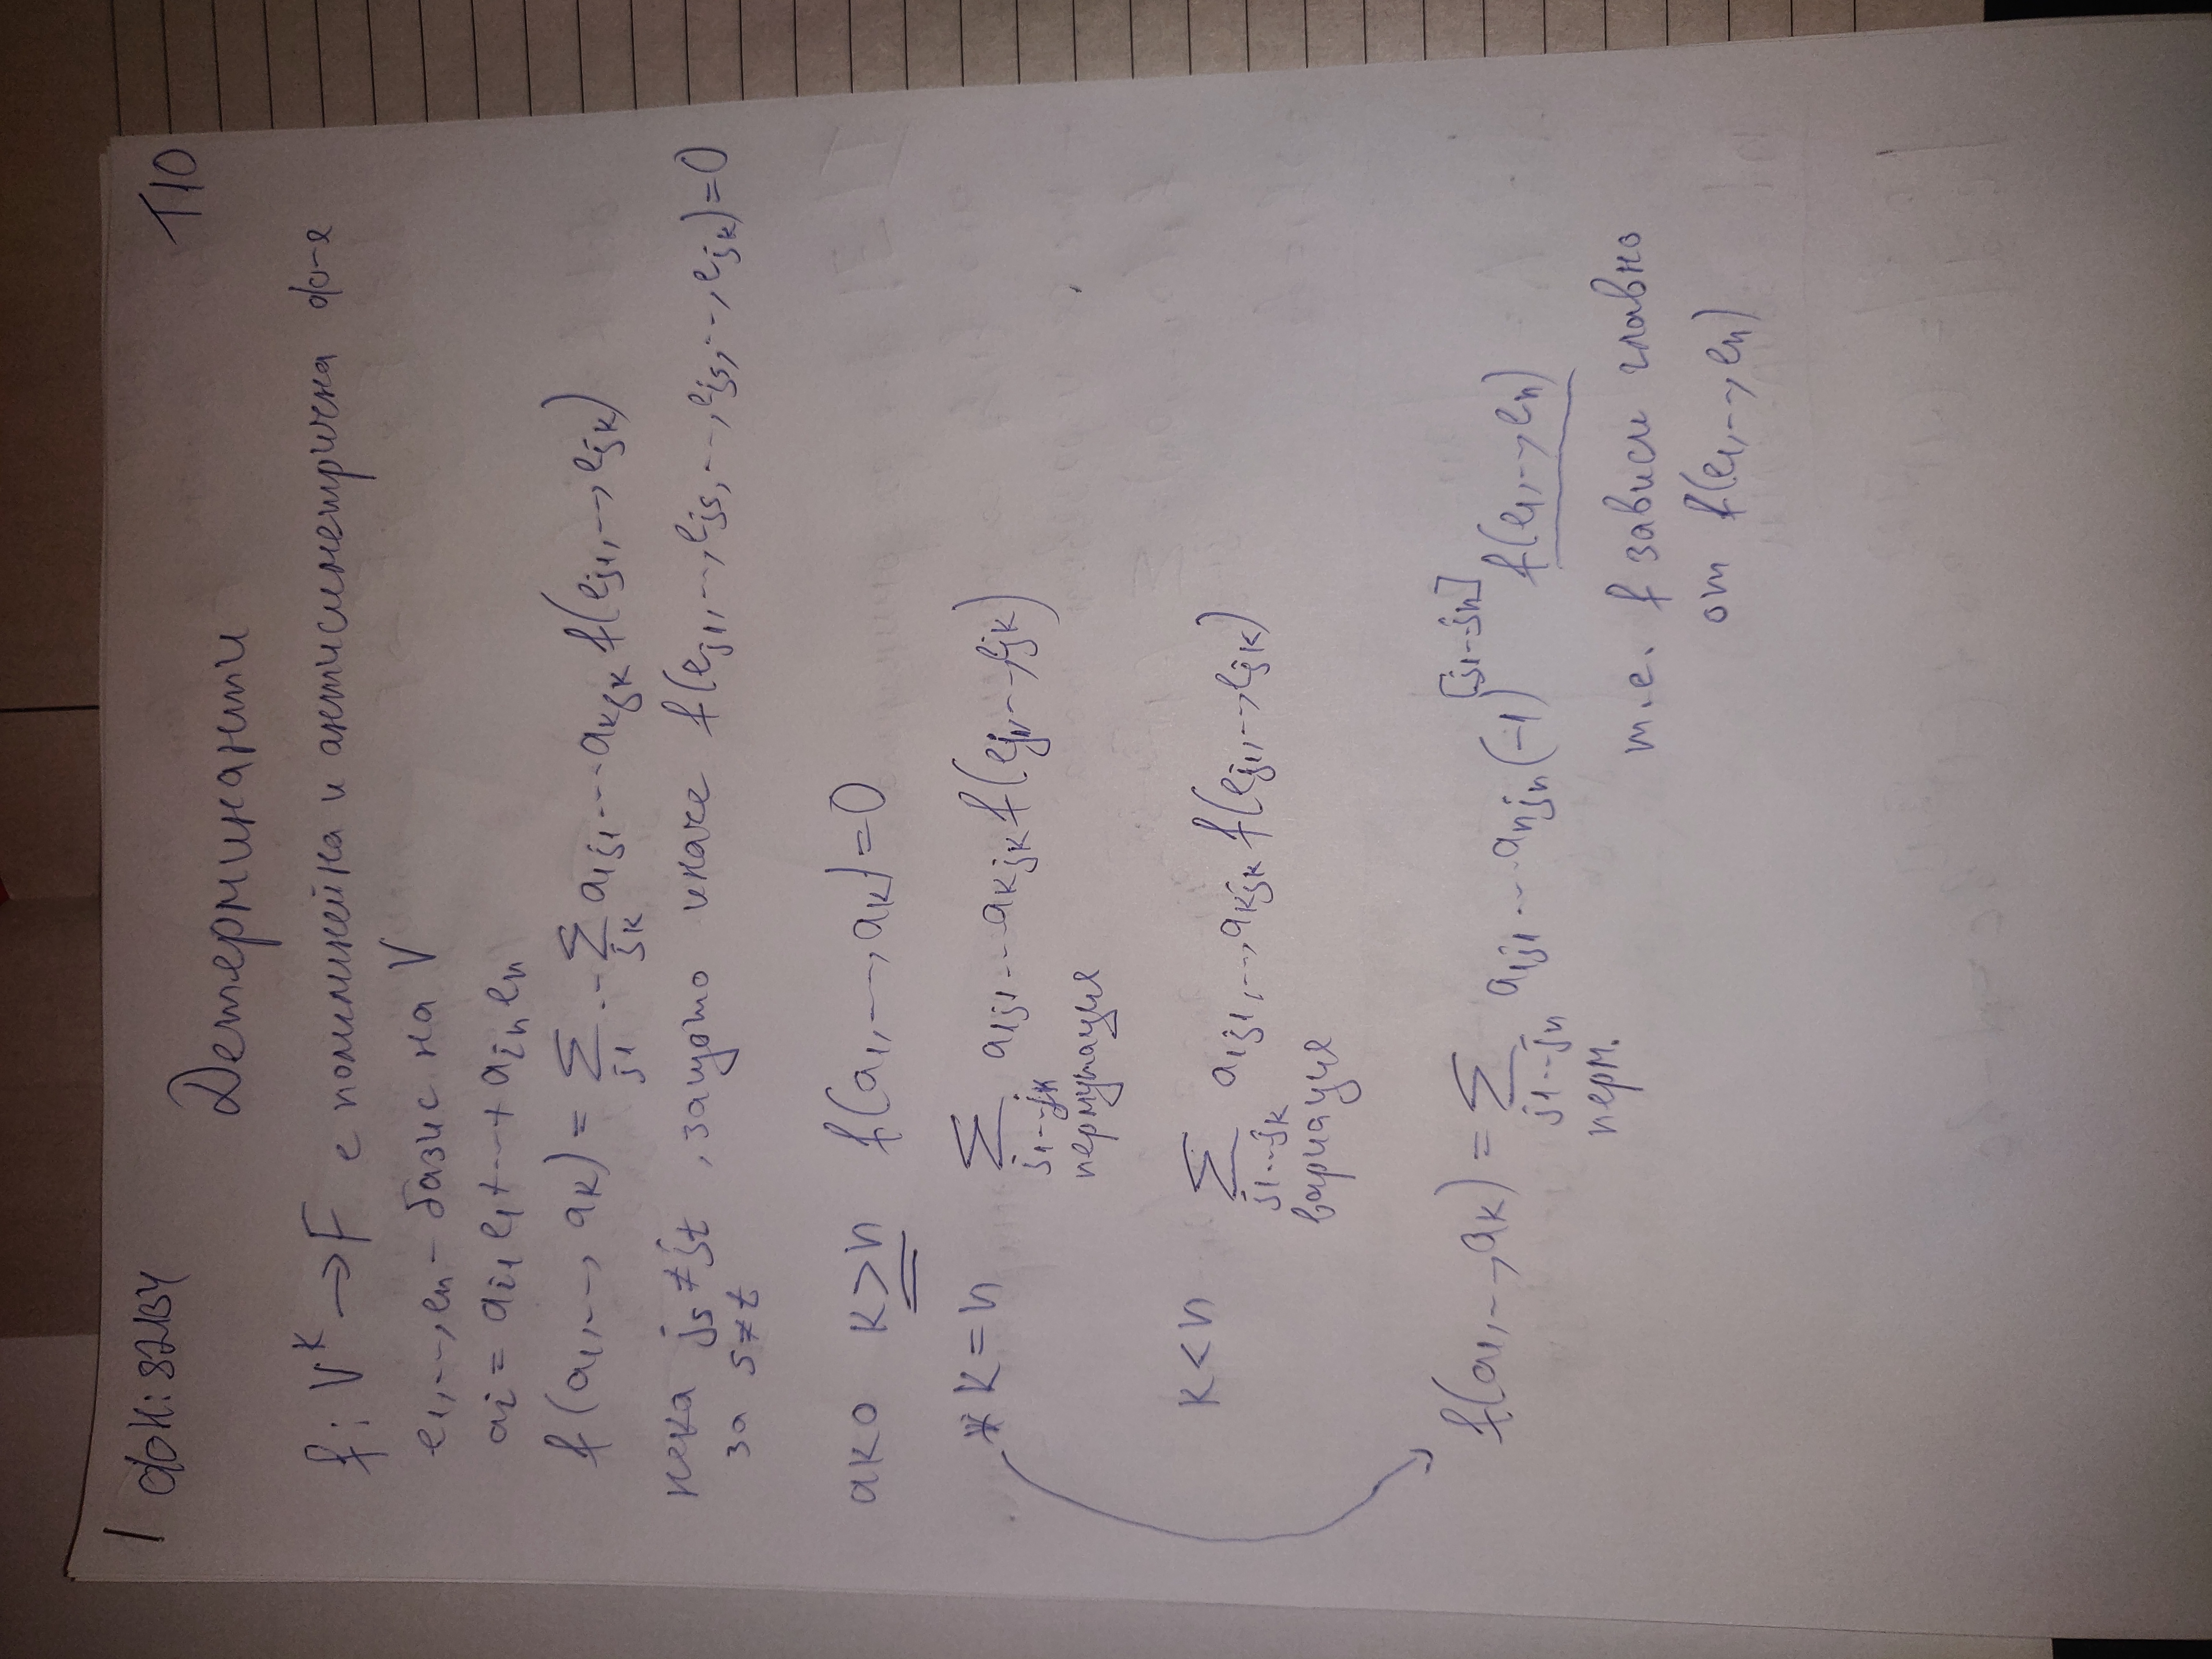 1 фн: 82134 T10
Детерминанти
f: V^k → F е полилинейна и антисиметрична ф-я
e₁,...,eₙ - базис на V
aᵢ = aᵢ₁e₁+...+aᵢₙeₙ
f(a₁,..., aₖ) = Σ_{j₁}...Σ_{jₖ} a_{1j₁}...a_{kjₖ} f(e_{j₁},...,e_{jₖ})
нека jₛ ≠ jₜ, защото иначе f(e_{j₁},...,e_{jₛ},...,e_{jₛ},...,e_{jₖ})=0
за s≠t
ако k>n f(a₁,...,aₖ)=0
* k=n Σ a_{1j₁}...a_{kjₖ} f(e_{j₁},...,e_{jₖ})
j₁...jₖ
пермутация
k<n Σ a_{1j₁},...,a_{kjₖ} f(e_{j₁},...,e_{jₖ})
j₁...jₖ
вариация
f(a₁,...,aₖ) = Σ a_{1j₁}...a_{njₙ}(-1)^{[j₁...jₙ]} f(e₁,...,eₙ)
j₁...jₙ
перм.
т.е. f зависи главно
от f(e₁,...,eₙ)